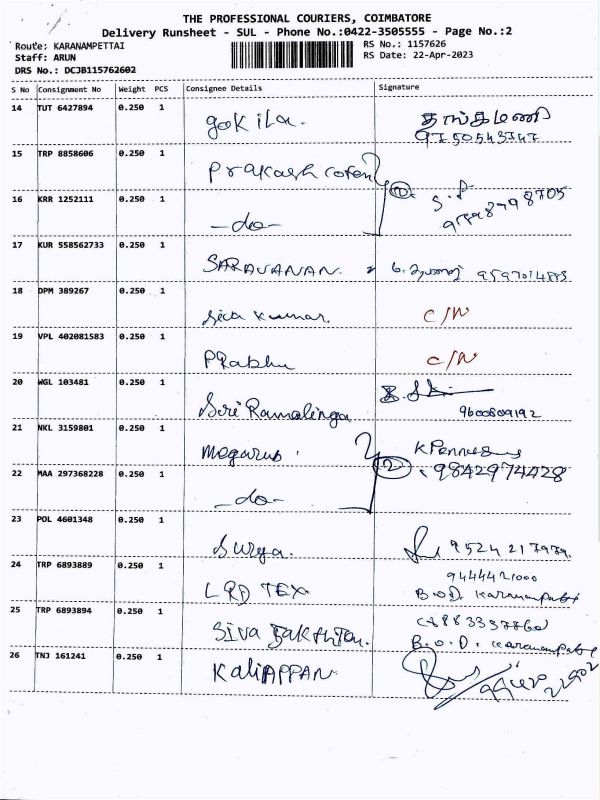 THE PROFESSIONAL COURIERS, COIMBATORE
Delivery Runsheet - SUL - Phone No.:0422-3505555 - Page No.:2
Route: KARANAMPETTAI RS No.: 1157626
Staff: ARUN RS Date: 22-Apr-2023
DRS No.: DCJB115762602
S No Consignment No Weight PCS Consignee Details Signature
14 TUT 6427894 0.250 1 gokila. தங்கமணி
9750543747
15 TRP 8858606 0.250 1 Prakash coten
16 KRR 1252111 0.250 1 -do- ② S. P.
17 KUR 558562733 0.250 1 SARAVANAN.
18 DPM 389267 0.250 1 Siva kumar. C/N
19 VPL 402081583 0.250 1 PRabhu C/N
20 WGL 103481 0.250 1 Siri Ramalinga
9600809192
21 NKL 3159801 0.250 1
22 MAA 297368228 0.250 1 -do- ② 9842974428
23 POL 4601348 0.250 1 Surya. 9524217979.
24 TRP 6893889 0.250 1 LRD TEX. 9444421000
B.O.D. Karanampatti
25 TRP 6893894 0.250 1 SIVA
B.O.D. Karanampatti
26 TNJ 161241 0.250 1 KaliAPPAN